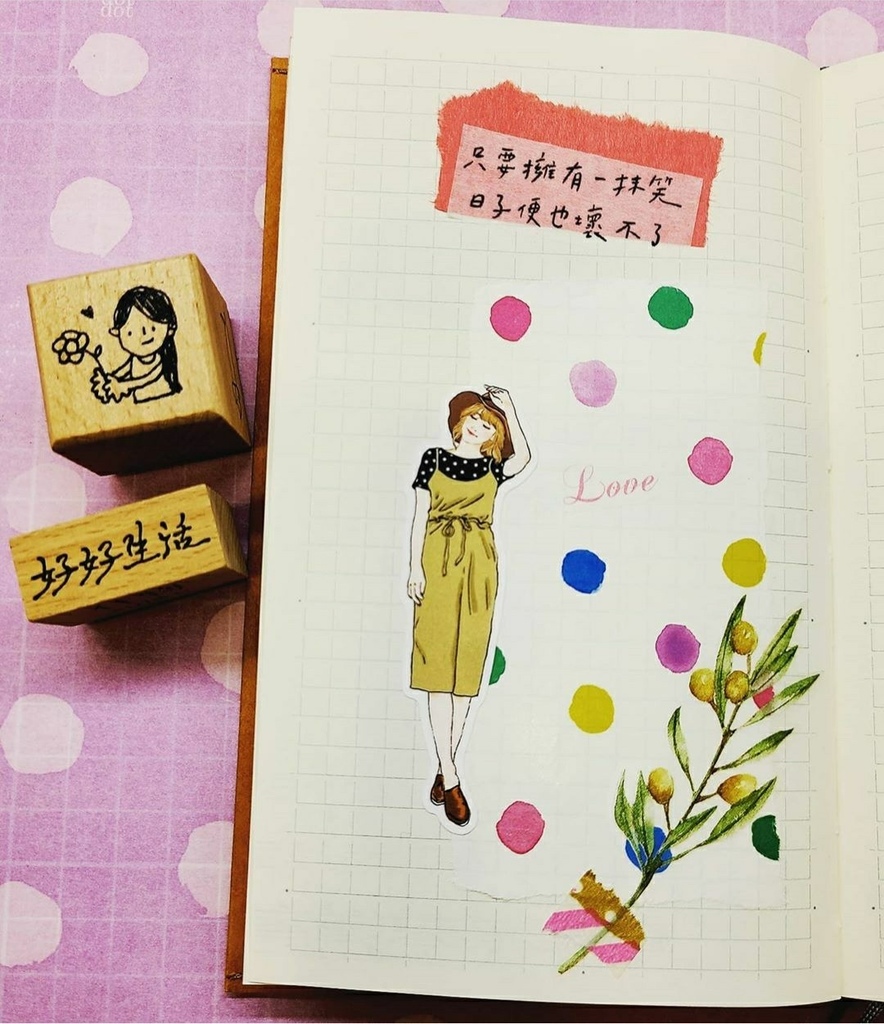 dot
只要擁有一抹笑
日子便也壞不了
Love
好好生活